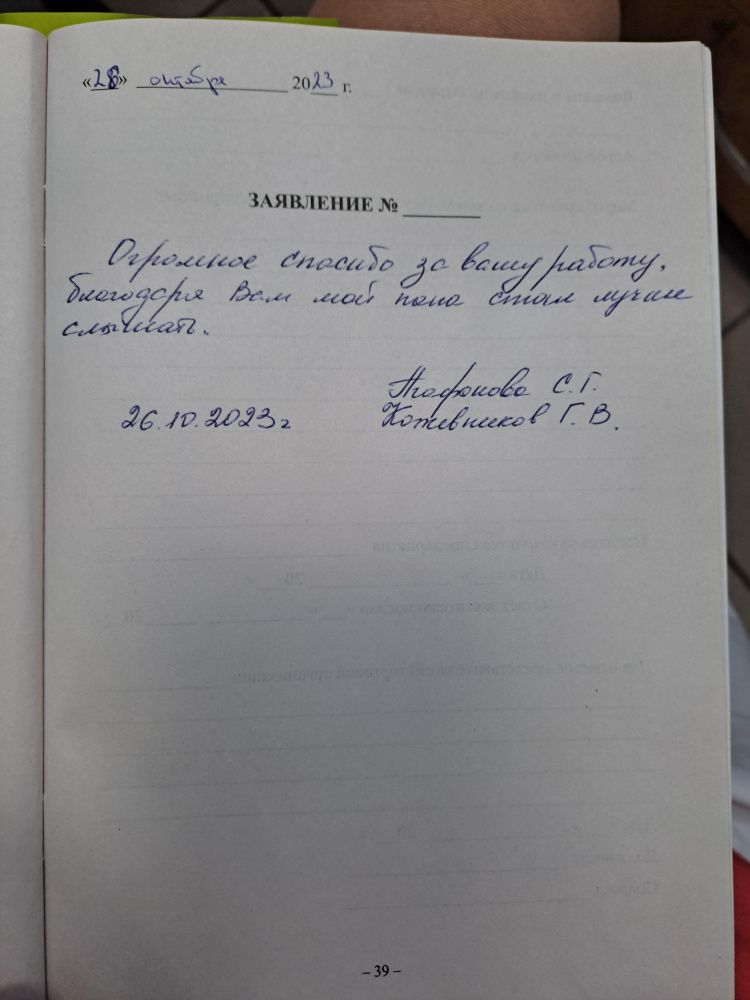 «26» октября 2023 г.
ЗАЯВЛЕНИЕ № ______
Огромное спасибо за вашу работу,
благодаря Вам мой папа стал лучше
слышать.
Агафонова С.Г.
26.10.2023г Кожевников Г.В.
– 39 –